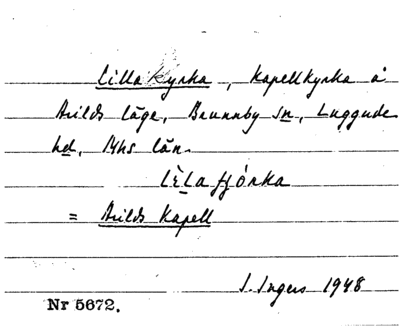 Lilla Kyrka, Kapellkyrka å
Arilds läge, Brunnby sn, Luggude
hd, Mhs län.
lèla fjórka
= Arilds Kapell
I. Ingers 1948
Nr 5672.